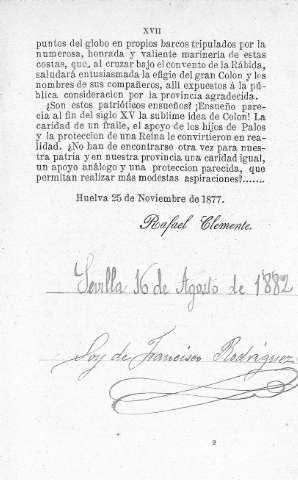 XVII
puntos del globo en propios barcos tripulados por la
numerosa, honrada y valiente marinería de estas
costas, que, al cruzar bajo el convento de la Rábida,
saludará entusiasmada la efigie del gran Colon y los
nombres de sus compañeros, allí expuestos á la pú-
blica consideracion por la provincia agradecida.
¿Son estos patrióticos ensueños? ¡Ensueño pare-
cia al fin del siglo XV la sublime idea de Colon! La
caridad de un fraile, el apoyo de los hijos de Palos
y la proteccion de una Reina le convirtieron en rea-
lidad. ¿No han de encontrarse otra vez para nues-
tra patria y en nuestra provincia una caridad igual,
un apoyo análogo y una proteccion parecida, que
permitan realizar más modestas aspiraciones?.......
Huelva 25 de Noviembre de 1877.
Rafael Clemente.
Sevilla 16 de Agosto de 1882
Soy de Francisco Rodriguez
2